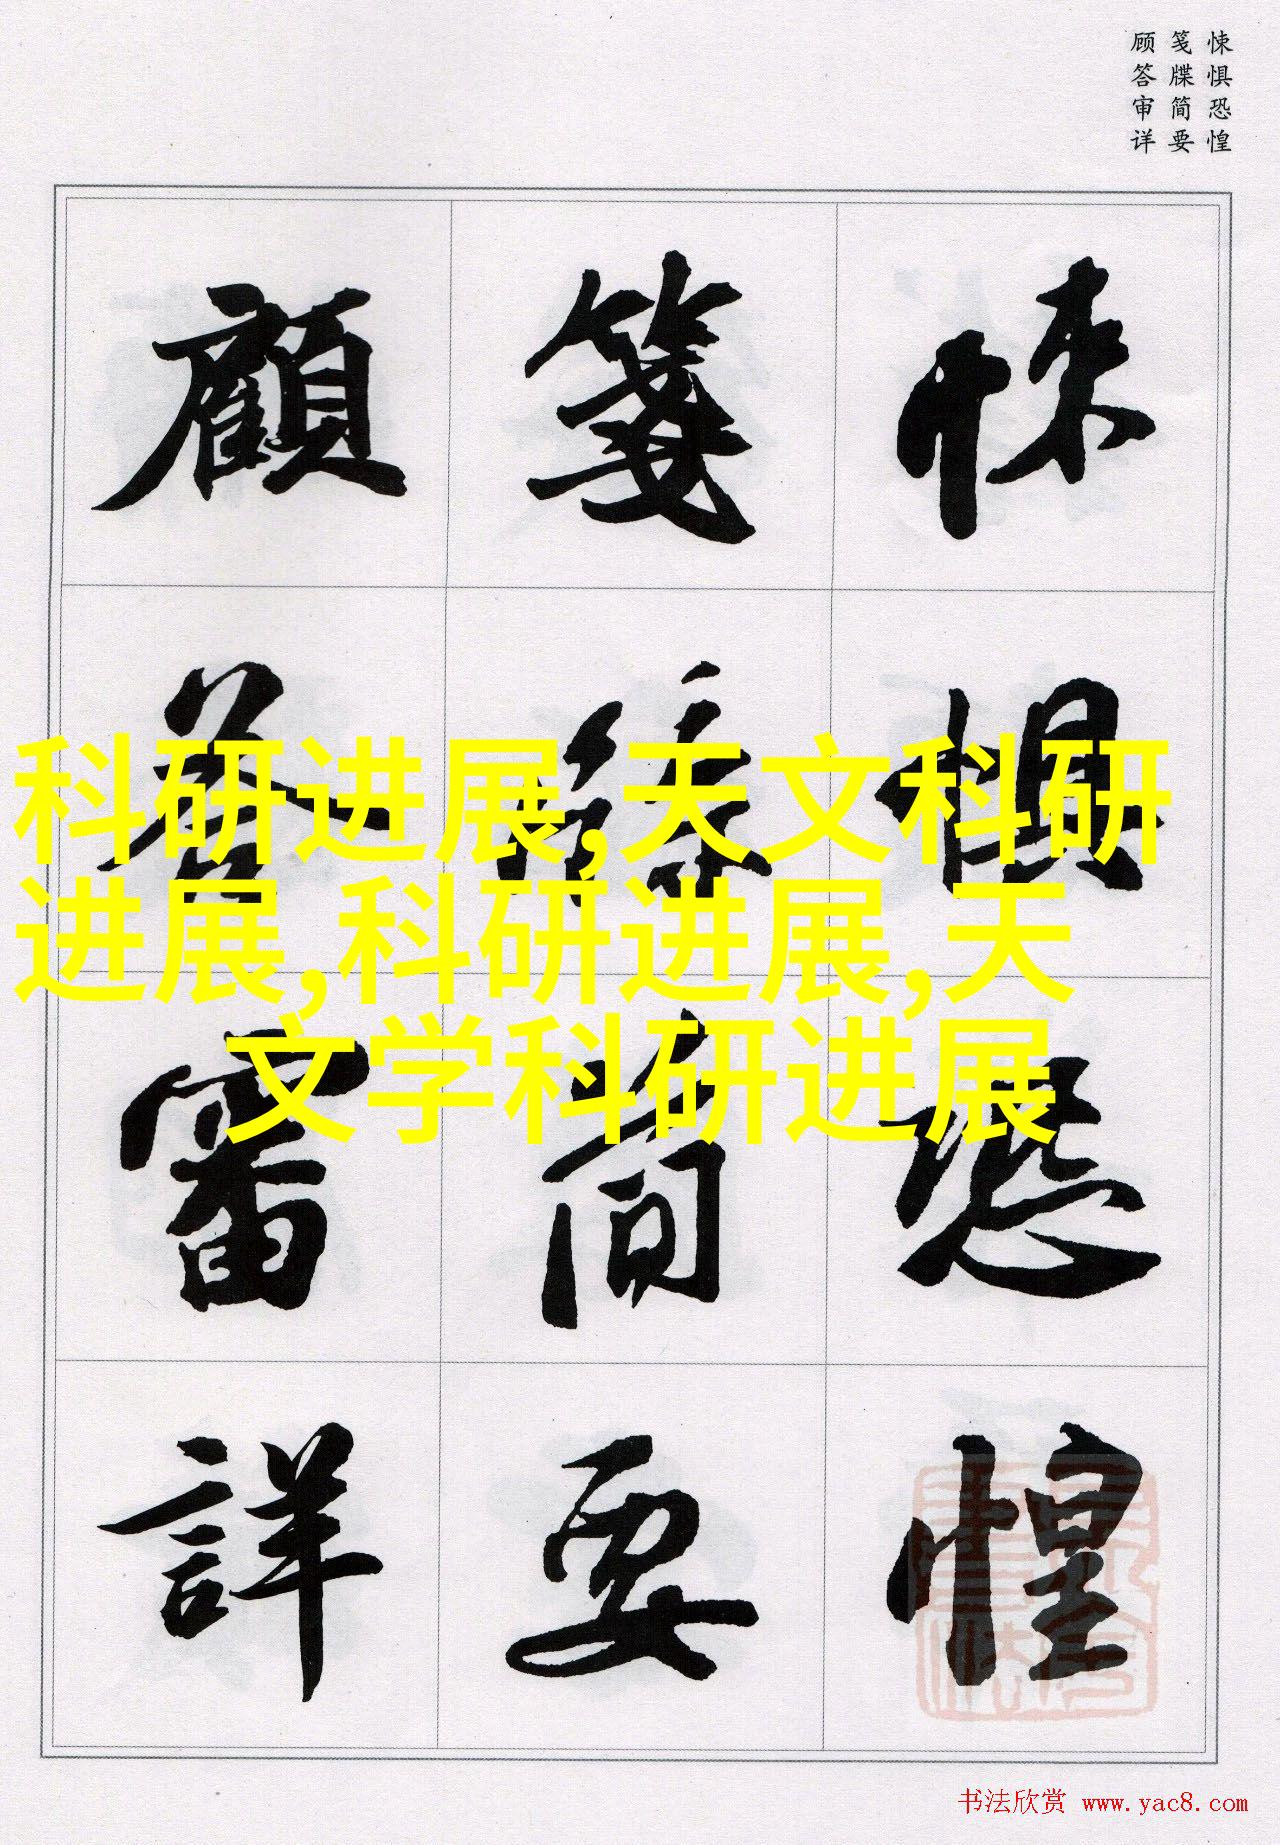 悚惧恐惶
笺牒简要
顾答审详
悚惧恐惶
箋牒簡要
顧答審詳
科研进展,天文科研
进展,科研进展,天
文学科研进展
书法欣赏 www.yac8.com